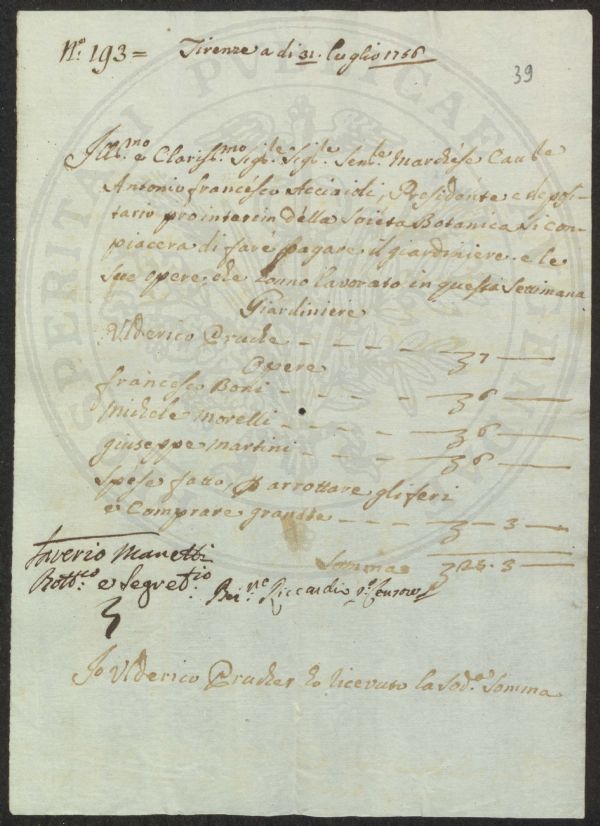 N.º 193 = Firenze a di 31. luglio 1756
39
Ill.mo e Clariss.mo Sig.le Sig.le Sen.le Marchese Cau.le
Antonio francesco Acciaioli, Presidente e deposi-
tario pro interim della Società Botanica si con-
piacera di fare pagare il giardiniere e le
sue opere, che hanno lavorato in questa Settimana
Giardiniere
Ulderico Prucker — — — — 7 —
Opere
francesco Boni — — — — 6 —
Michele Morelli — — — — 6 —
giuseppe Martini — — — — 6 —
spese fatto, p arrottare gli feri
e Comprare — — — — 3 —
Somma 25. 3 —
Saverio Manetti
Bott.co e Segret.io
Ber.no Riccardi
Io Ulderico Prucker ho ricevuto la sod.a somma